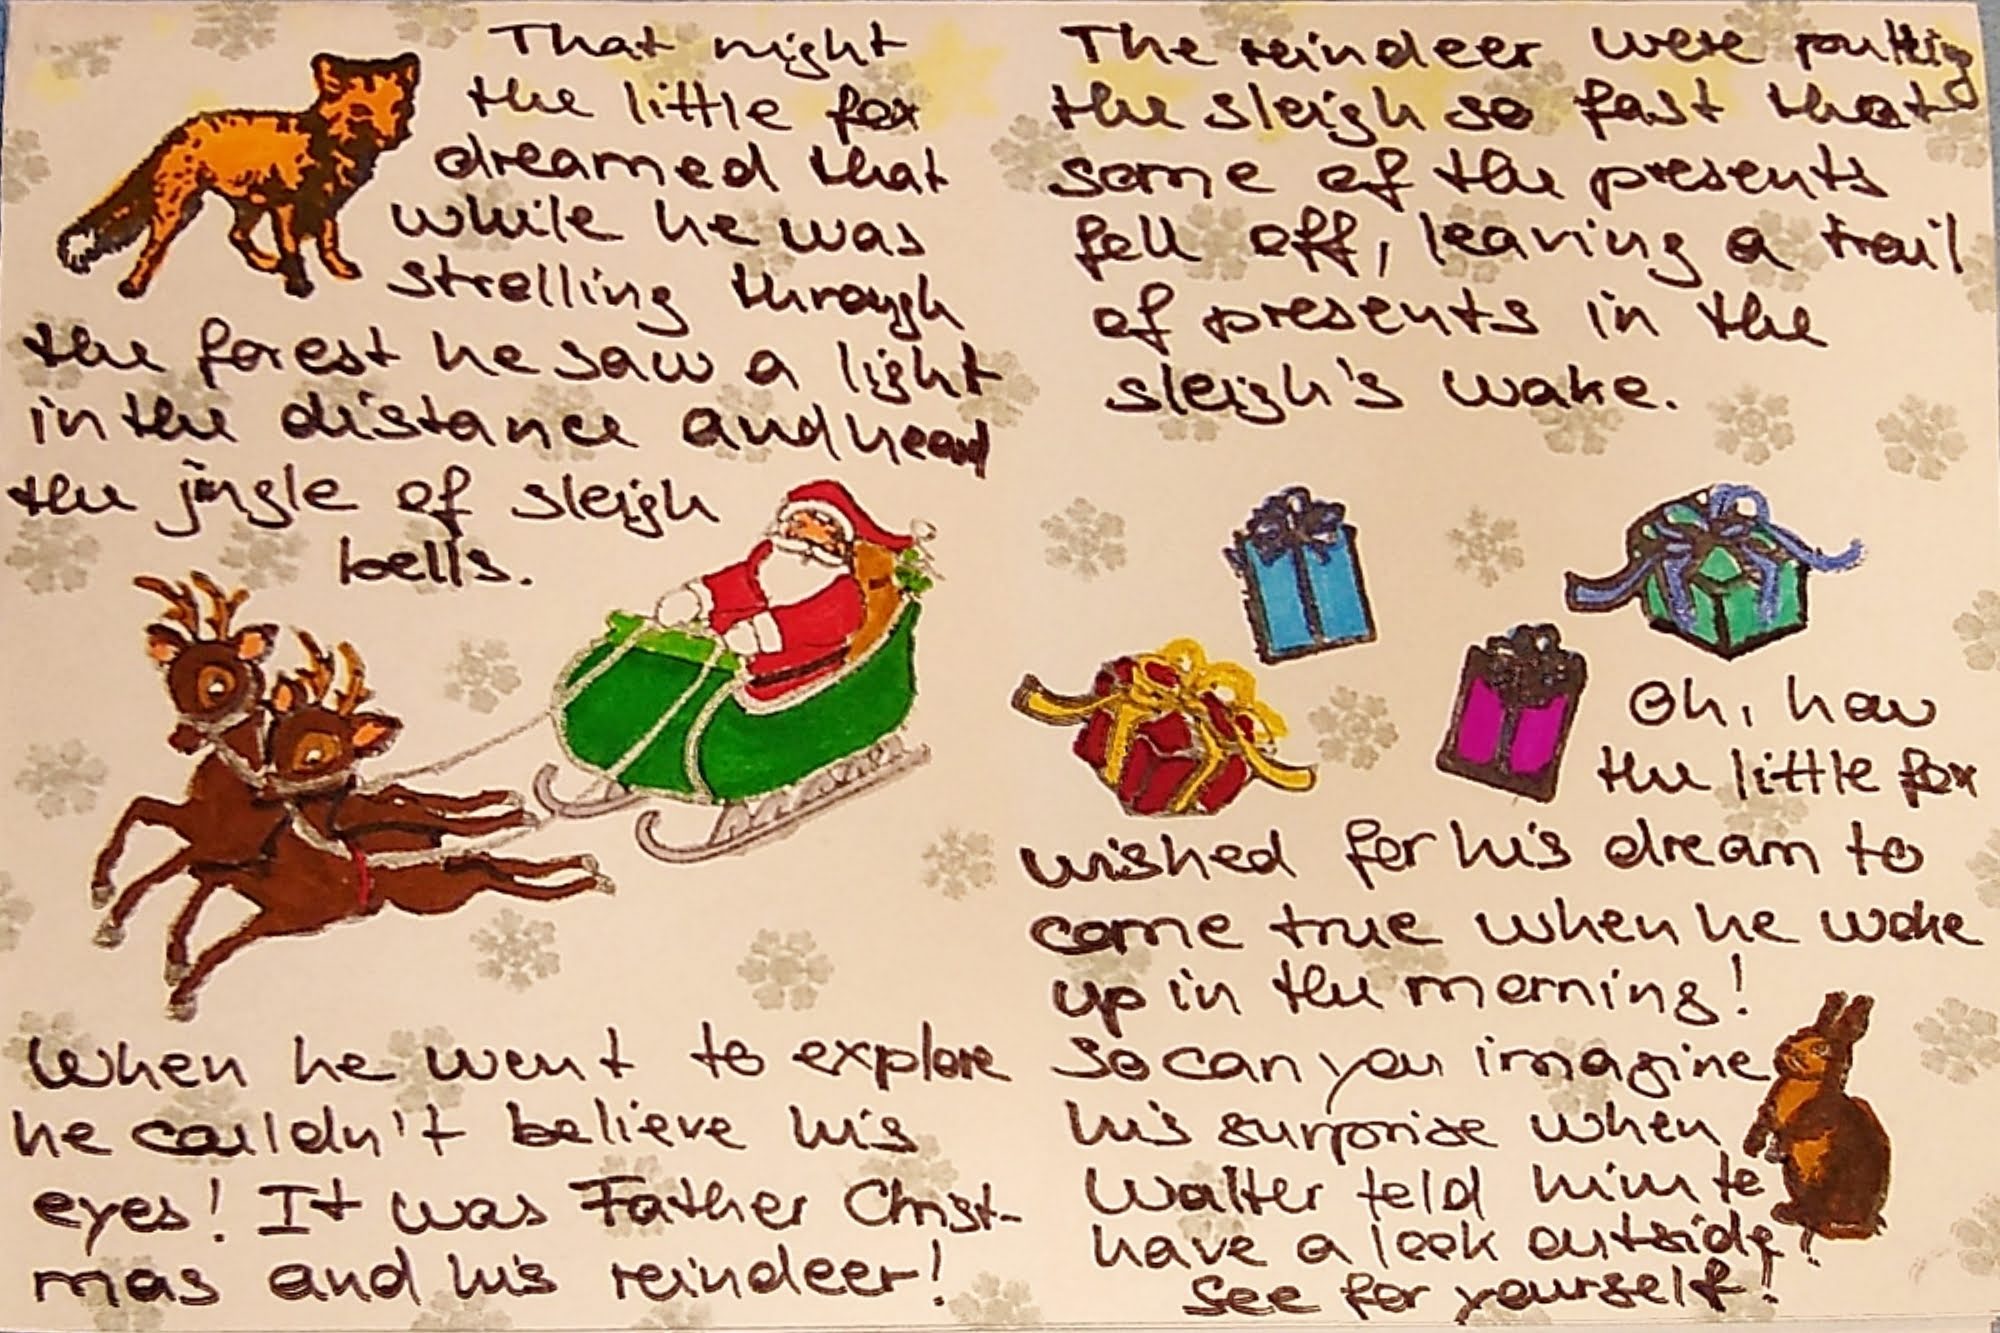 That night
the little fox
dreamed that
while he was
strolling through
the forest he saw a light
in the distance and heard
the jingle of sleigh
bells.
When he went to explore
he couldn't believe his
eyes! It was Father Christ-
mas and his reindeer!
The reindeer were pulling
the sleigh so fast that
some of the presents
fell off, leaving a trail
of presents in the
sleigh's wake.
Oh, how
the little fox
wished for his dream to
come true when he woke
up in the morning!
So can you imagine
his surprise when
Walter told him to
have a look outside!
See for yourself!